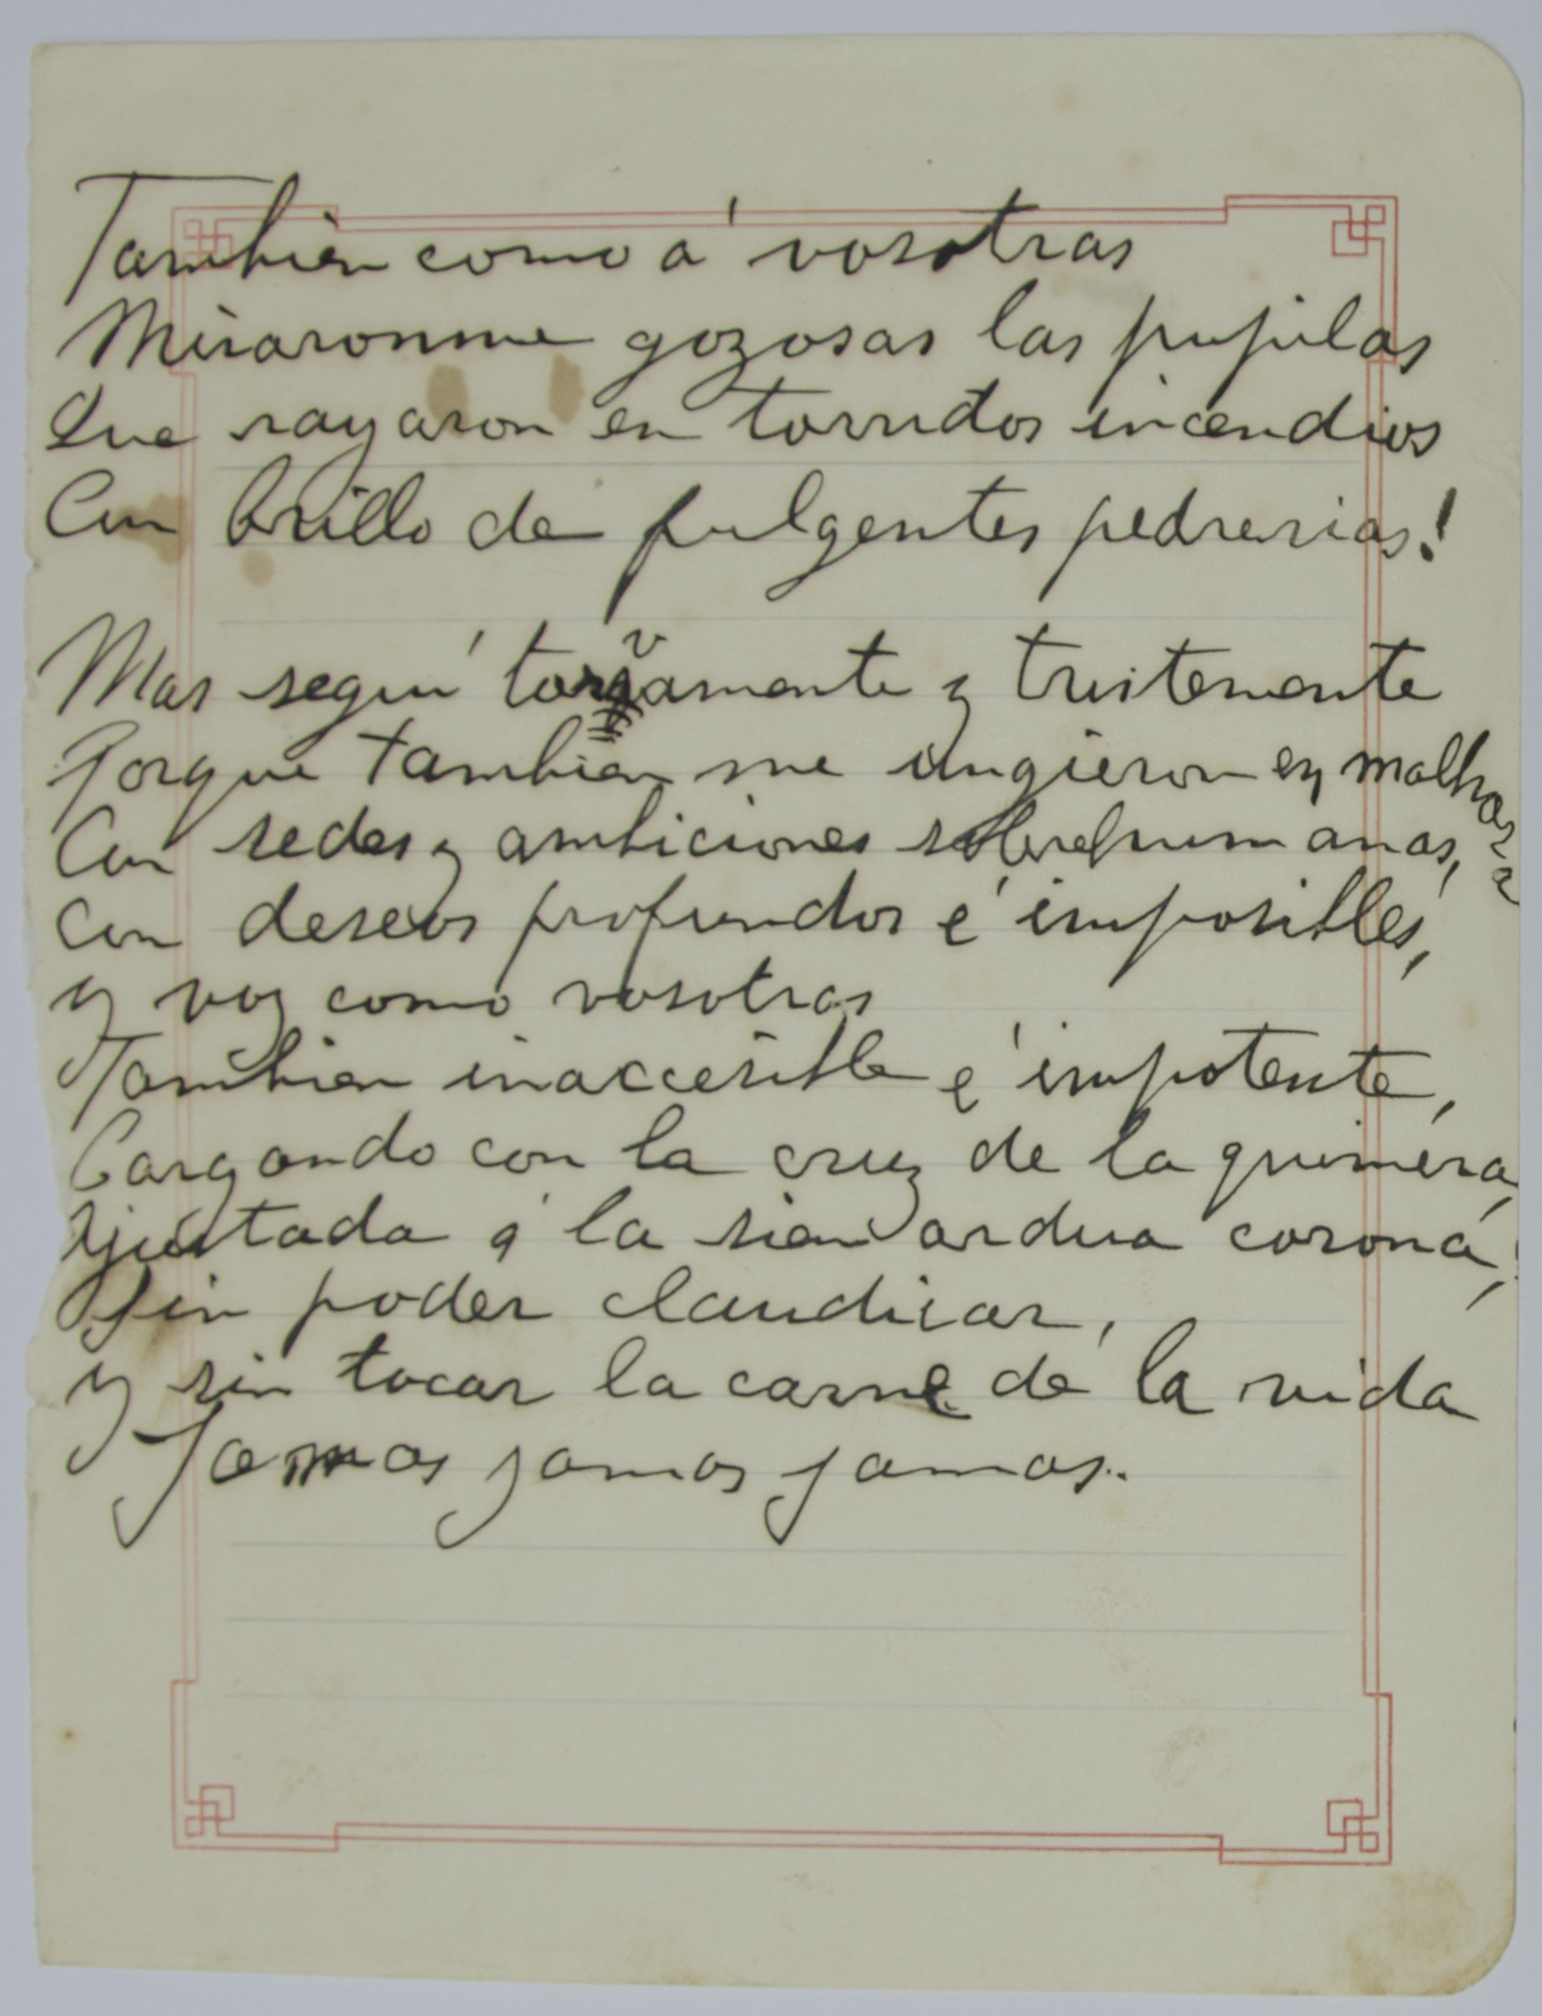 Tambien como á vosotras
Miraronme gozosas las pupilas
Que rayaron en torridos incendios
Con brillo de fulgentes pedrerias!
Mas seguí torvamente y tristemente
Porque tambien me ungieron en malhora
Con sedes y ambiciones sobrehumanas,
Con deseos profundos é imposibles,
y voy como vosotras
Tambien inaccesible é impotente,
Cargando con la cruz de la quimera,
Ajustada á la sien ardua corona,
Sin poder claudicar,
y sin tocar la carne de la vida
Jamas jamas jamas.